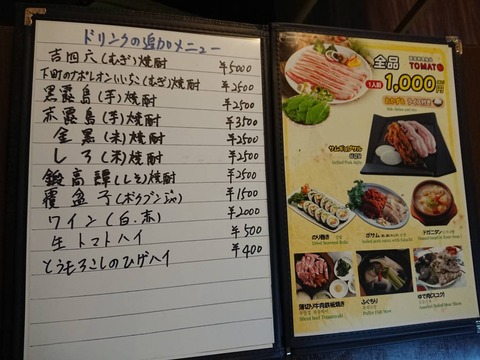 ドリンクの追加メニュー
吉四六(むぎ)焼酎 ¥5000
下町のナポレオンいいちこ(むぎ)焼酎 ¥2500
黒霧島(芋)焼酎 ¥2500
赤霧島(芋)焼酎 ¥3500
金黒(米)焼酎 ¥2500
しろ(米)焼酎 ¥2500
鍛高譚(しそ)焼酎 ¥2500
覆盆子(ボクブンジャ) ¥1500
ワイン(白.赤) ¥2000
生トマトハイ ¥500
とうもろこしのひげハイ ¥400
TOMATO
全品
1人前
1,000円
おかず& ライス付き
サムギョプサル
のり巻き
ボサム
ドガニタン
薄切り牛肉鉄板焼き
ふぐちり
ゆで肉